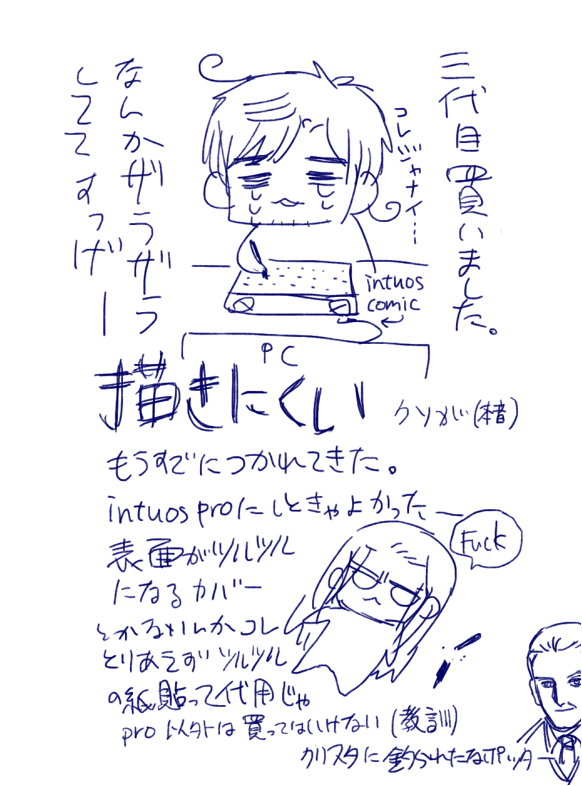 三代目買いました。
コレジャナイ…
なんかザラザラ
しててすっげー
intuos
comic
PC
描きにくい
クソが(本音)
もうすでにつかれてきた。
intuos proにしときゃよかったー
Fuck
表面がツルツル
になるカバー
とかないんかコレ
とりあえずツルツル
の紙貼って代用じゃ
pro以外は買ってはいけない(教訓)
クリスタに釣られたなポッター